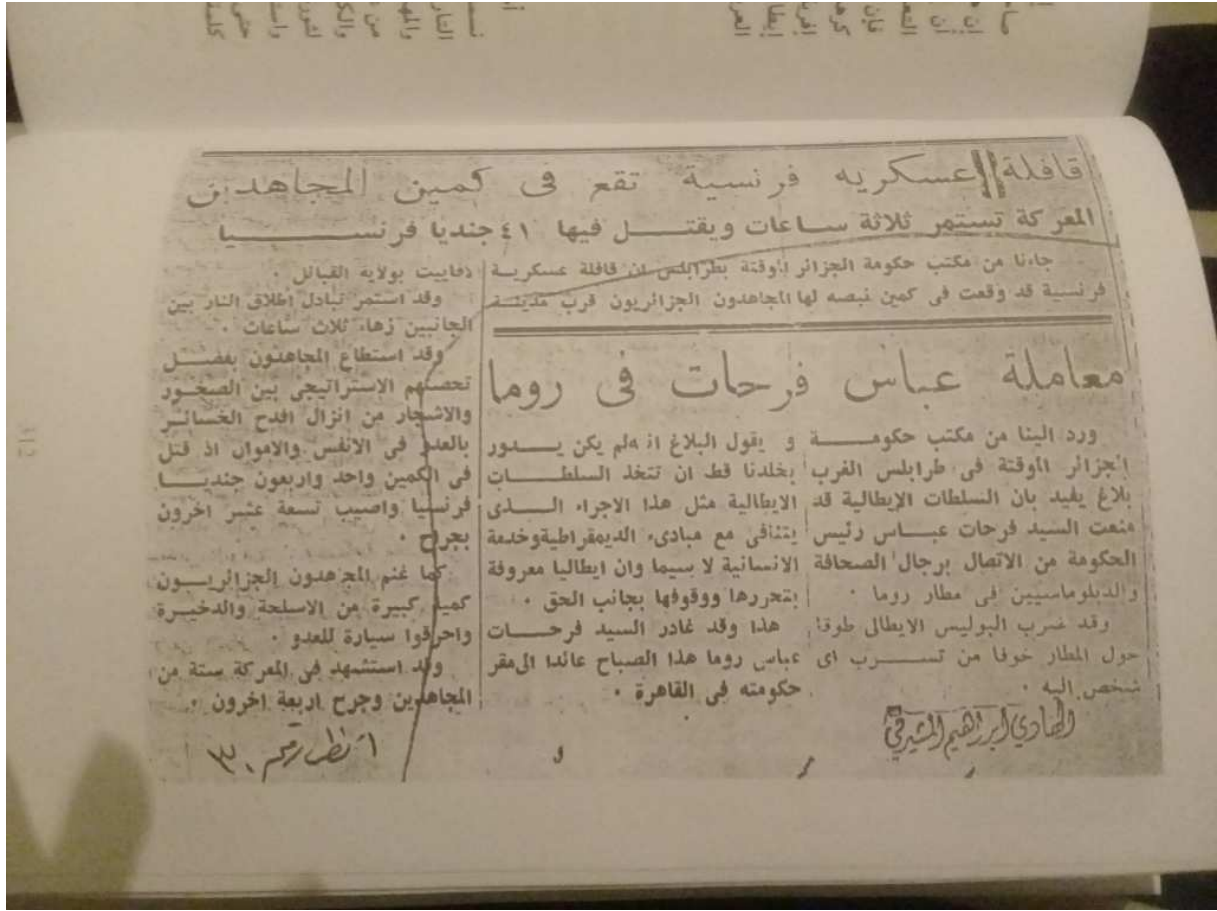 قافلة عسكريه فرنسية تقع فى كمين المجاهدين
المعركة تستمر ثلاثة ساعات ويقتل فيها ٤١ جنديا فرنسيا
جاءنا من مكتب حكومة الجزائر المؤقتة بطرابلس ان قافلة عسكرية
فرنسية قد وقعت فى كمين نصبه لها المجاهدون الجزائريون قرب مدينة
بولاية القبائل .
وقد استمر تبادل اطلاق النار بين
الجانبين زهاء ثلاث ساعات .
وقد استطاع المجاهدون بفضل
تحصنهم الاستراتيجى بين الصخور
والاشجار من انزال افدح الخسائر
بالعدو فى الانفس والاموال اذ قتل
فى الكمين واحد واربعون جنديا
فرنسيا واصيب تسعة عشر اخرون
بجراح .
كما غنم المجاهدون الجزائريون
كمية كبيرة من الاسلحة والذخيرة
واحرقوا سيارة للعدو .
وقد استشهد فى المعركة ستة من
المجاهدين وجرح اربعة اخرون .
معاملة عباس فرحات فى روما
ورد الينا من مكتب حكومة
الجزائر المؤقتة فى طرابلس الغرب
بلاغ يفيد بان السلطات الإيطالية قد
منعت السيد فرحات عباس رئيس
الحكومة من الاتصال برجال الصحافة
والدبلوماسيين فى مطار روما .
وقد ضرب البوليس الايطالى طوقا
حول المطار خوفا من تسرب اى
شخص اليه .
و يقول البلاغ انه لم يكن يدور
بخلدنا قط ان تتخذ السلطات
الايطالية مثل هذا الاجراء الذى
يتنافى مع مبادىء الديمقراطية وخدمة
الانسانية لا سيما وان ايطاليا معروفة
بتحررها ووقوفها بجانب الحق .
هذا وقد غادر السيد فرحات
عباس روما هذا الصباح عائدا الى مقر
حكومته فى القاهرة .
الهادي ابراهيم المشيرقي
٤١٣